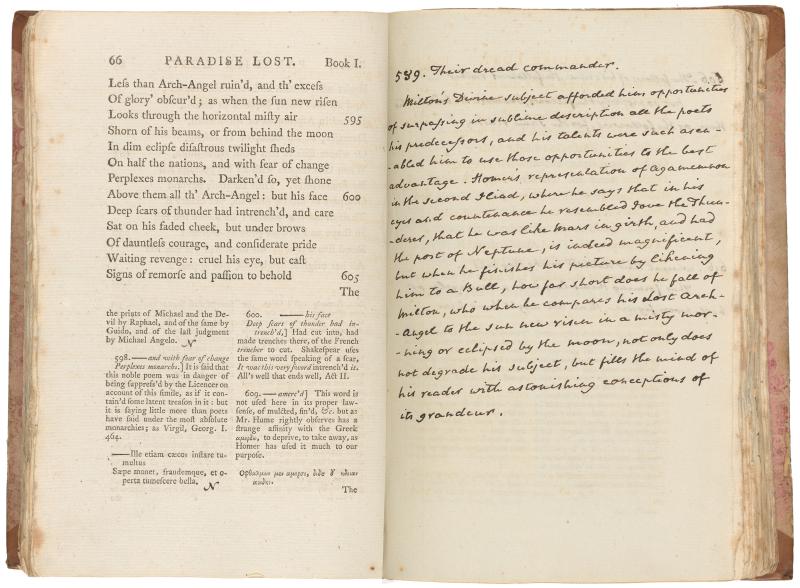 66 PARADISE LOST. Book I.
Leſs than Arch-Angel ruin'd, and th' exceſs
Of glory' obſcur'd; as when the ſun new riſen
Looks through the horizontal miſty air 595
Shorn of his beams, or from behind the moon
In dim eclipſe diſaſtrous twilight ſheds
On half the nations, and with fear of change
Perplexes monarchs. Darken'd ſo, yet ſhone
Above them all th' Arch-Angel: but his face 600
Deep ſcars of thunder had intrench'd, and care
Sat on his faded cheek, but under brows
Of dauntleſs courage, and conſiderate pride
Waiting revenge: cruel his eye, but caſt
Signs of remorſe and paſſion to behold 605
The
the prints of Michael and the De-
vil by Raphael, and of the ſame by
Guido, and of the laſt judgment
by Michael Angelo. N
598. —and with fear of change
Perplexes monarchs.] It is ſaid that
this noble poem was in danger of
being ſuppreſs'd by the Licencer on
account of this ſimile, as if it con-
tain'd ſome latent treaſon in it: but
it is ſaying little more than poets
have ſaid under the moſt abſolute
monarchies; as Virgil, Georg. I.
464.
—Ille etiam cæcos inſtare tu-
multus
Sæpe monet, fraudemque, et o-
perta tumeſcere bella. N
600. —his face
Deep ſcars of thunder had in-
trench'd,] Had cut into, had
made trenches there, of the French
trencher to cut. Shakeſpear uſes
the ſame word ſpeaking of a ſcar,
It was this very ſword intrench'd it.
All's well that ends well, Act II.
609. —amerc'd] This word is
not uſed here in its proper law-
ſenſe, of mulcted, fin'd, &c. but as
Mr. Hume rightly obſerves has a
ſtrange affinity with the Greek
αμερδω, to deprive, to take away, as
Homer has uſed it much to our
purpoſe.
Οφθαλμων μεν αμερσε, διδου δ' ηδειαν
αοιδην.
The
539. Their dread commander.
Milton's Divine subject afforded him opportunities
of surpassing in sublime description all the poets
his predecessors, and his talents were such as en-
-abled him to use those opportunities to the best
advantage. Homer's representation of Agamemnon
in the second Iliad, where he says that in his
eyes and countenance he resembled Jove the Thun-
-derer, that he was like Mars in girth, and had
the port of Neptune, is indeed magnificent,
but when he finishes his picture by likening
him to a Bull, how far short does he fall of
Milton, who when he compares his lost Arch-
-Angel to the sun new risen in a misty mor-
-ning or eclipsed by the moon, not only does
not degrade his subject, but fills the mind of
his reader with astonishing conceptions of
its grandeur.